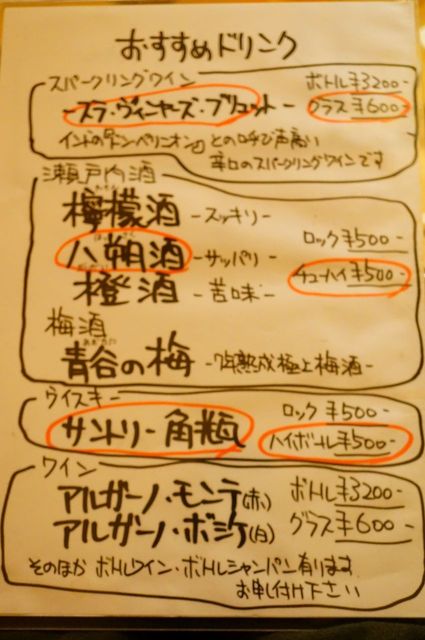 おすすめドリンク
スパークリングワイン ボトル¥3200-
-スラ・ヴィニヤーズ・ブリュット- グラス¥600-
インドの『ドン・ペリニオン』との呼び声高い
辛口のスパークリングワインです
瀬戸内酒
檸檬酒 -スッキリ-
八朔酒 -サッパリ- ロック¥500-
橙酒 -苦味- チューハイ¥500-
梅酒
青谷の梅 -7年熟成極上梅酒-
ウイスキー ロック¥500-
サントリー角瓶 ハイボール¥500-
ワイン
アルガーノ・モンテ(赤) ボトル¥3200-
アルガーノ・ボシケ(白) グラス¥600-
そのほか ボトルワイン・ボトルシャンパン有ります
お申し付け下さい